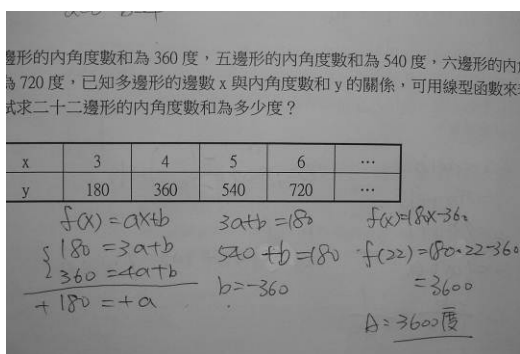 邊形的內角度數和為 360 度，五邊形的內角度數和為 540 度，六邊形的內
為 720 度，已知多邊形的邊數 x 與內角度數和 y 的關係，可用線型函數來
試求二十二邊形的內角度數和為多少度？
x 3 4 5 6 …
y 180 360 540 720 …
f(x)=ax+b
180=3a+b
360=4a+b
+180=+a
3a+b=180
540+b=180
b=-360
f(x)=180x-360
f(22)=180·22-360
=3600
A：3600度